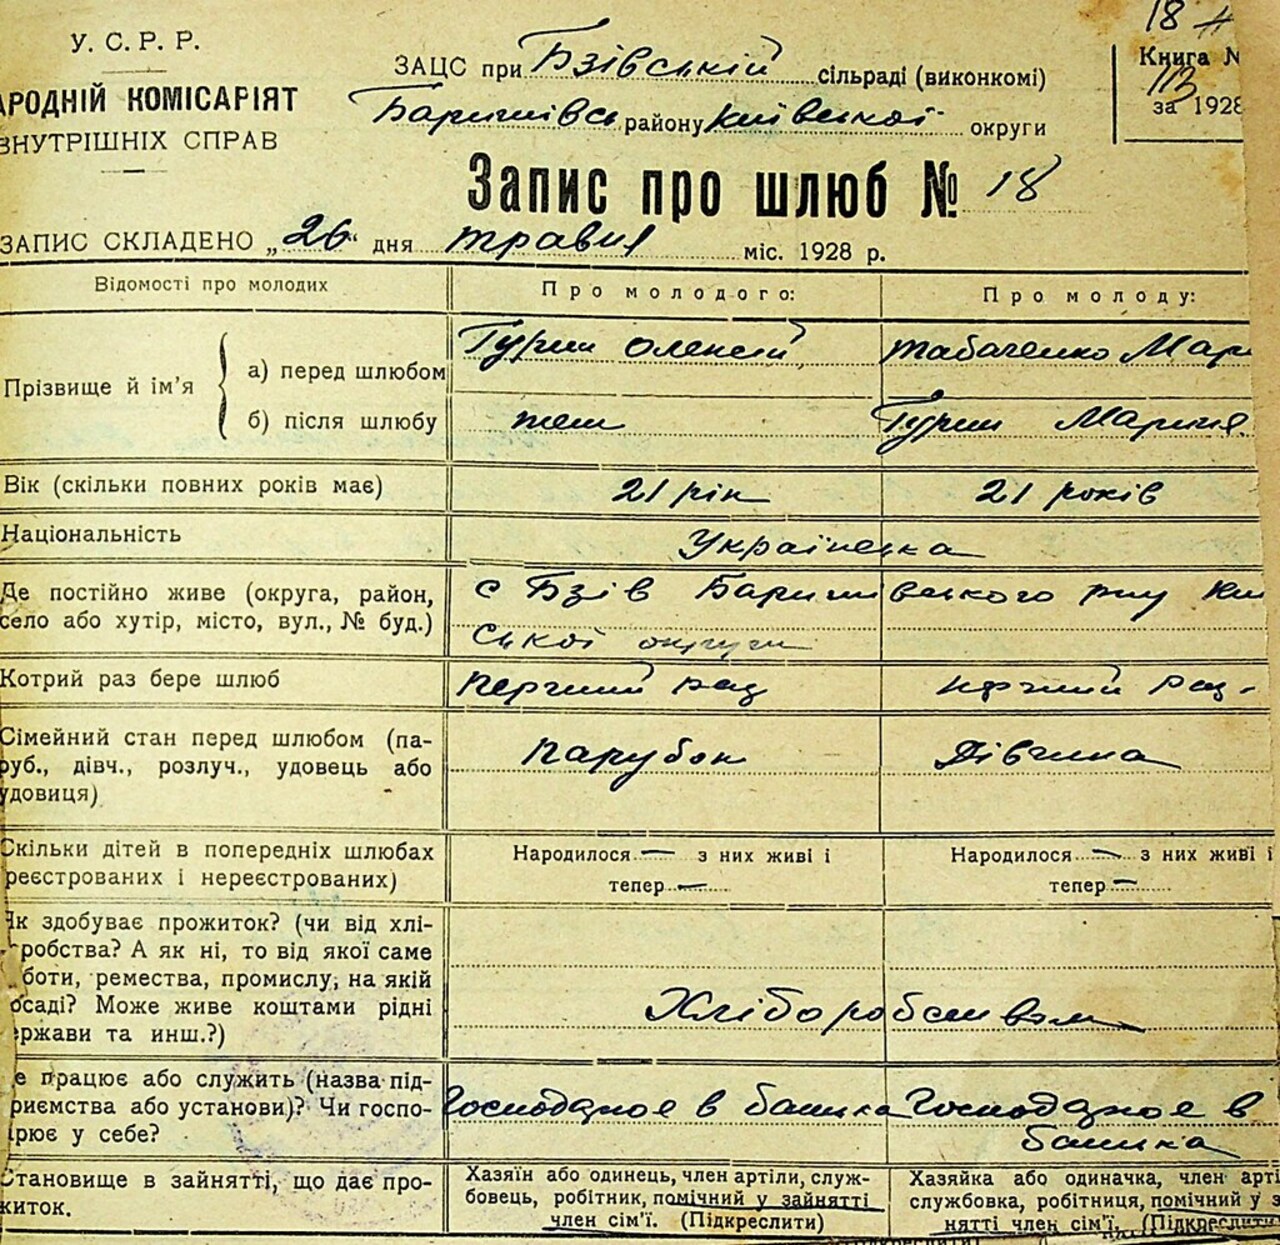 У. С. Р. Р.
АРОДНІЙ КОМІСАРІЯТ
ВНУТРІШНІХ СПРАВ
ЗАЦС при Бзівській сільраді (виконкомі)
Баришівськ району Київської округи
18
Книга №
113
за 1928
Запис про шлюб № 18
ЗАПИС СКЛАДЕНО „26" дня травня міс. 1928 р.
Відомості про молодих
Про молодого:
Про молоду:
Прізвище й ім'я
а) перед шлюбом
Гурин Олексій
Табаченко Мар
б) після шлюбу
теж
Гурин Марина
Вік (скільки повних років має)
21 рік
21 років
Національність
Українська
Де постійно живе (округа, район,
село або хутір, місто, вул., № буд.)
с Бзів Баришівського р-ну Киї
ської округи
Котрий раз бере шлюб
перший раз
перший раз
Сімейний стан перед шлюбом (па-
руб., дівч., розлуч., удовець або
удовиця)
Парубок
Дівчина
Скільки дітей в попередніх шлюбах
реєстрованих і нереєстрованих)
Народилося — з них живі і
тепер —
Народилося — з них живі і
тепер —
Як здобуває прожиток? (чи від хлі-
робства? А як ні, то від якої саме
боти, ремества, промислу, на якій
осаді? Може живе коштами рідні
ержави та инш.?)
Хліборобством
е працює або служить (назва під-
приємства або установи)? Чи госпо-
арює у себе?
Господарює в батька
Господарює в
батька
Становище в зайнятті, що дає про-
житок.
Хазяїн або одинець, член артіли, служ-
бовець, робітник, помічний у зайнятті
член сім'ї. (Підкреслити)
Хазяйка або одиначка, член арті
службовка, робітниця, помічний у з
нятті член сім'ї. (Підкреслити